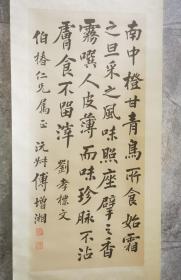 南中橙甘青鳥所食始霜
之旦采之風味照座擘之香
霧噀人皮薄而味珍脉不沾
膚食不留滓　劉孝標文
伯椿仁兄属正　沅叔傅增湘